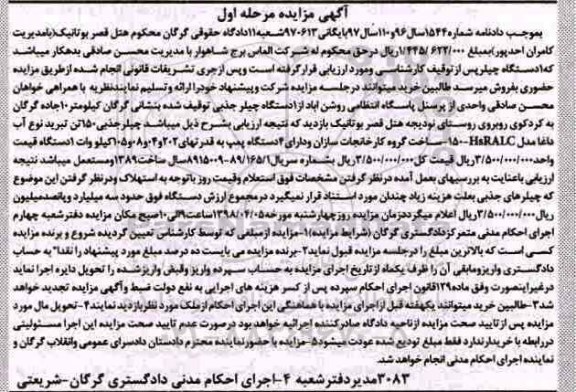 آگهی مزایده مرحله اول
بموجب دادنامه شماره ۱۵۴۴سال۹۶و۱۱۰سال۹۷بایگانی۹۷۰۶۱۳شعبه۱۱دادگاه حقوقی گرگان محکوم هتل قصر بوتانیک(بامدیریت
کامران احدپور)بمبلغ ۱/۴۴۵/۶۲۲/۰۰۰ریال درحق محکوم له شرکت الماس برج شاهوار با مدیریت محسن صادقی بدهکار میباشد
که۱دستگاه چیلرپس ازتوقیف کارشناسی ومورد ارزیابی قرارگرفته است وپس ازجری تشریفات قانونی انجام شده ازطریق مزایده
حضوری بفروش میرسد طالبین خرید میتوانند درجلسه مزایده شرکت وپیشنهاد خودرا ارائه وتسلیم نمایندنظریه با همراهی خواهان
محسن صادقی واحدی از پرسنل پاسگاه انتظامی روشن اباد از۱دستگاه چیلر جذبی توقیف شده بنشانی گرگان کیلومتر۱۰جاده گرگان
به کردکوی روبروی روستای نودیجه هتل قصر بوتانیک بازدید که نتیجه ارزیابی بشرح ذیل میباشد. چیلرجذبی۱۵۰تن تبرید نوع آب
داغ مدل HsRALC-۱۵۰ساخت گروه کارخانجات سازان ودارای۴دستگاه پمپ به قدرتهای۲۰۲و۴و۵/۰کیلو وات ۱دستگاه قیمت
واحد۳/۵۰۰/۰۰۰/۰۰۰ریال قیمت کل۳/۵۰۰/۰۰۰/۰۰۰ریال بشماره سریال۸۹۱۵۰۰۹-۸۹/۱۶۵/۱سال ساخت۱۳۸۹ومستعمل میباشد نتیجه
ارزیابی باعنایت به بررسیهای بعمل آمده درنظر گرفتن مشخصات فوق استعلام وقیمت روز باتوجه به استهلاک ودرنظر گرفتن این موضوع
که چیلرهای جذبی بعلت هزینه زیاد چندان مورد استناد قرار نمیگیرد درمجموع ارزش دستگاه فوق حدود سه میلیارد وپانصدمیلیون
ریال۳/۵۰۰/۰۰۰/۰۰۰ریال اعلام میگرددزمان مزایده روزچهارشنبه مورخه۱۳۹۸/۰۴/۰۵ساعت۹الی۱۰صبح مکان مزایده دفترشعبه چهارم
اجرای احکام مدنی متمرکزدادگستری گرگان (شرایط مزایده)۱-مزایده ازمبلغی که توسط کارشناس تعیین گردیده شروع و برنده مزایده
کسی است که بالاترین مبلغ را درجلسه مزایده قبول نماید۲-برنده مزایده می بایست ده درصد مبلغ مورد پیشنهاد را نقدا" به حساب
دادگستری واریزومابقی آن را ظرف یکماه ازتاریخ اجرای مزایده به حساب سپرده واریز وفیش واریزشده را تحویل دایره اجرا نماید
درغیراینصورت وفق ماده۱۲۹قانون اجرای احکام سپرده پس از کسر هزینه های اجرایی به نفع دولت ضبط وآگهی مزایده تجدید خواهد
شد۳-طالبین خرید میتوانند یکهفته قبل ازاجرای مزایده با هماهنگی این اجرای احکام ازملک مورد نظربازدید نمایند۴-تحویل مال مورد
مزایده پس ازتایید صحت مزایده ازناحیه دادگاه صادرکننده اجرائیه خواهد بود درصورت عدم تایید صحت مزایده این اجرا مسئولیتی
دررابطه با خریدارندارد فقط مبلغ تودیع شده عودت میشود۵-مزایده با حضورنماینده محترم دادستان دادسرای عمومی وانقلاب گرگان و
نماینده اجرای احکام مدنی انجام خواهد شد.
۳۰۸۳مدیردفترشعبه ۴-اجرای احکام مدنی دادگستری گرگان-شریعتی